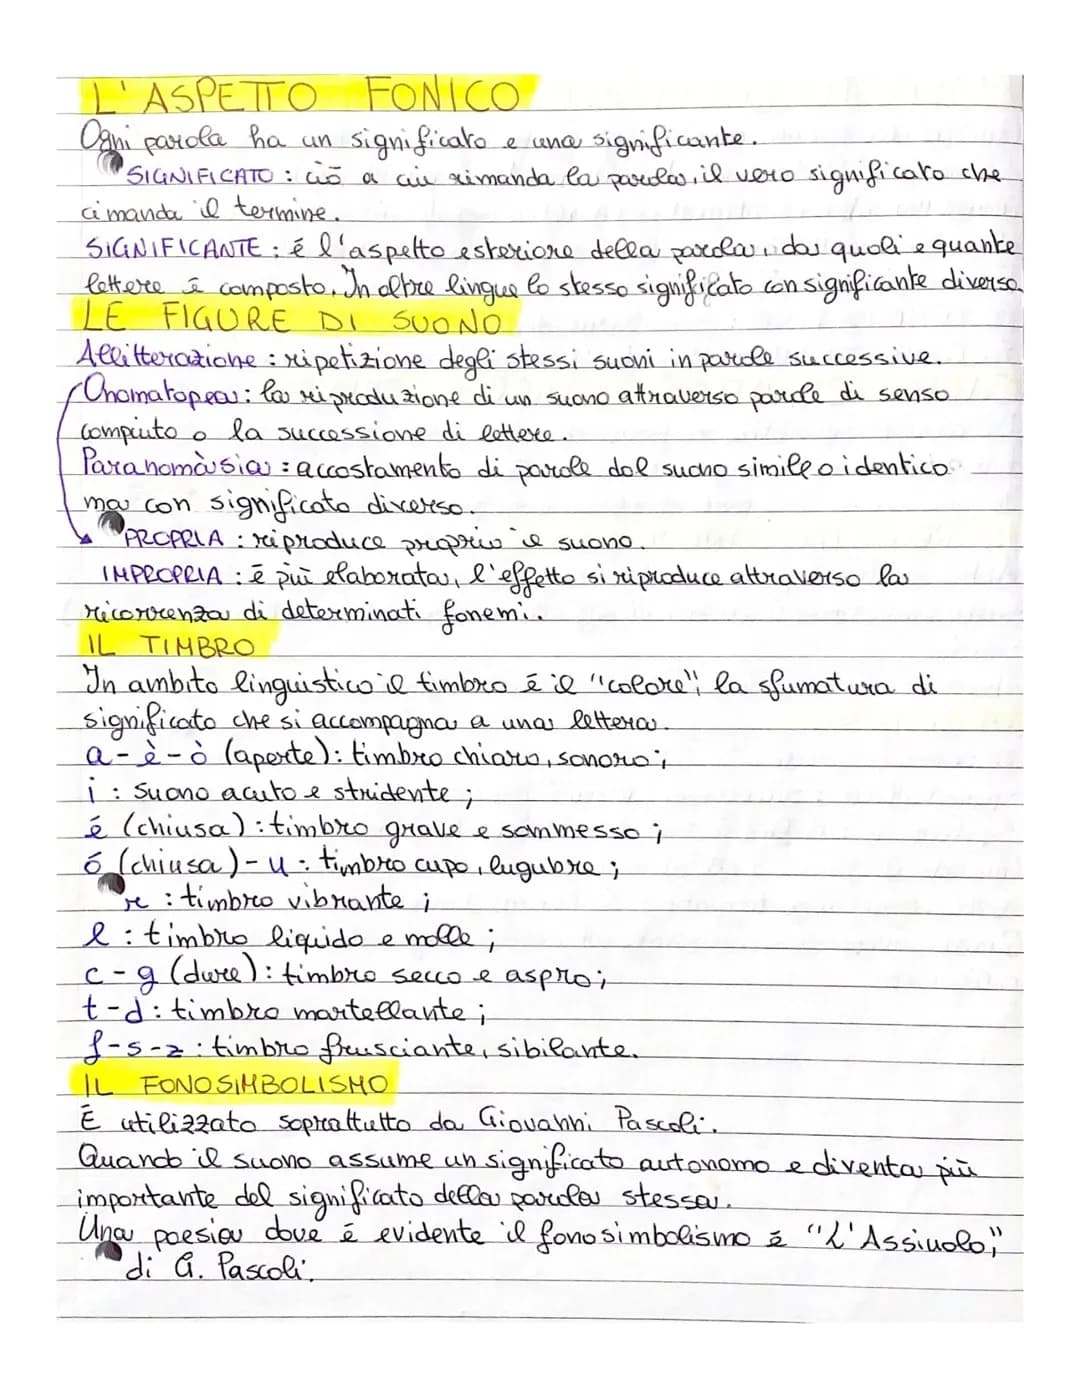 L'ASPETTO FONICO
Ogni parola ha un significato e una significante.
SIGNIFICATO : ciò a cui rimanda la parola, il vero significato che
ci manda il termine.
SIGNIFICANTE : é l'aspetto esteriore della parola, da quali e quante
lettere é composto. In altre lingue lo stesso significato con significante diverso.
LE FIGURE DI SUONO
Allitterazione : ripetizione degli stessi suoni in parole successive.
Onomatopea : la riproduzione di un suono attraverso parole di senso
compiuto o la successione di lettere.
Paranomàsia : accostamento di parole dal suono simile o identico
ma con significato diverso.
PROPRIA : riproduce proprio il suono.
IMPROPRIA : é più elaborata, l'effetto si riproduce attraverso la
ricorrenza di determinati fonemi.
IL TIMBRO
In ambito linguistico il timbro é il "colore", la sfumatura di
significato che si accompagna a una lettera.
a - è - ò (aperte) : timbro chiaro, sonoro ;
i : suono acuto e stridente ;
é (chiusa) : timbro grave e sommesso ;
ó (chiusa) - u : timbro cupo, lugubre ;
r : timbro vibrante ;
l : timbro liquido e molle ;
c - g (dure) : timbro secco e aspro ;
t - d : timbro martellante ;
f - s - z : timbro frusciante, sibilante.
IL FONOSIMBOLISMO
É utilizzato soprattutto da Giovanni Pascoli.
Quando il suono assume un significato autonomo e diventa più
importante del significato della parola stessa.
Una poesia dove é evidente il fonosimbolismo é "L'Assiuolo,"
di G. Pascoli.